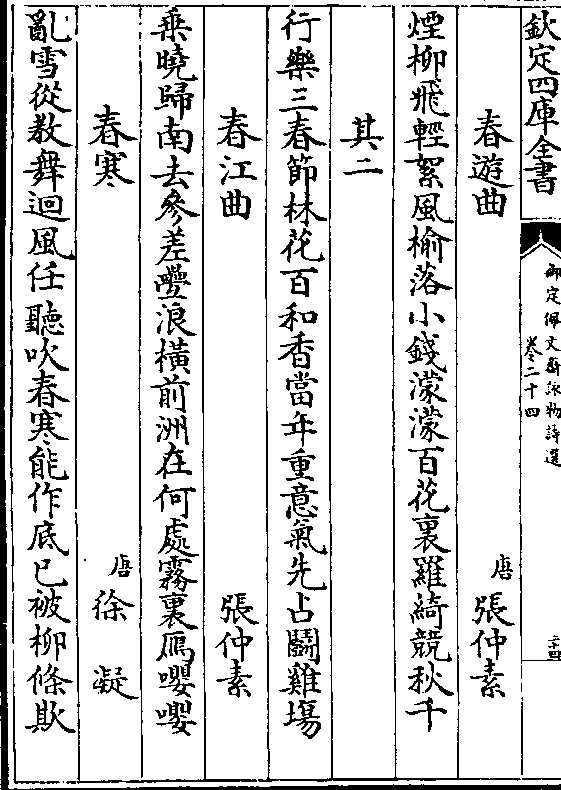 欽定四庫全書
御定佩文齋詠物詩選
卷二十四
二十四
春遊曲 唐 張仲素
煙柳飛輕絮風榆落小錢濛濛百花裏羅綺競秋千
其二
行樂三春節林花百和香當年重意氣先占鬭雞場
春江曲 張仲素
乗曉歸南去參差疊浪橫前洲在何處霧裏雁嚶嚶
春寒 唐 徐凝
亂雪從教舞迴風任聽吹春寒能作底已被柳條欺